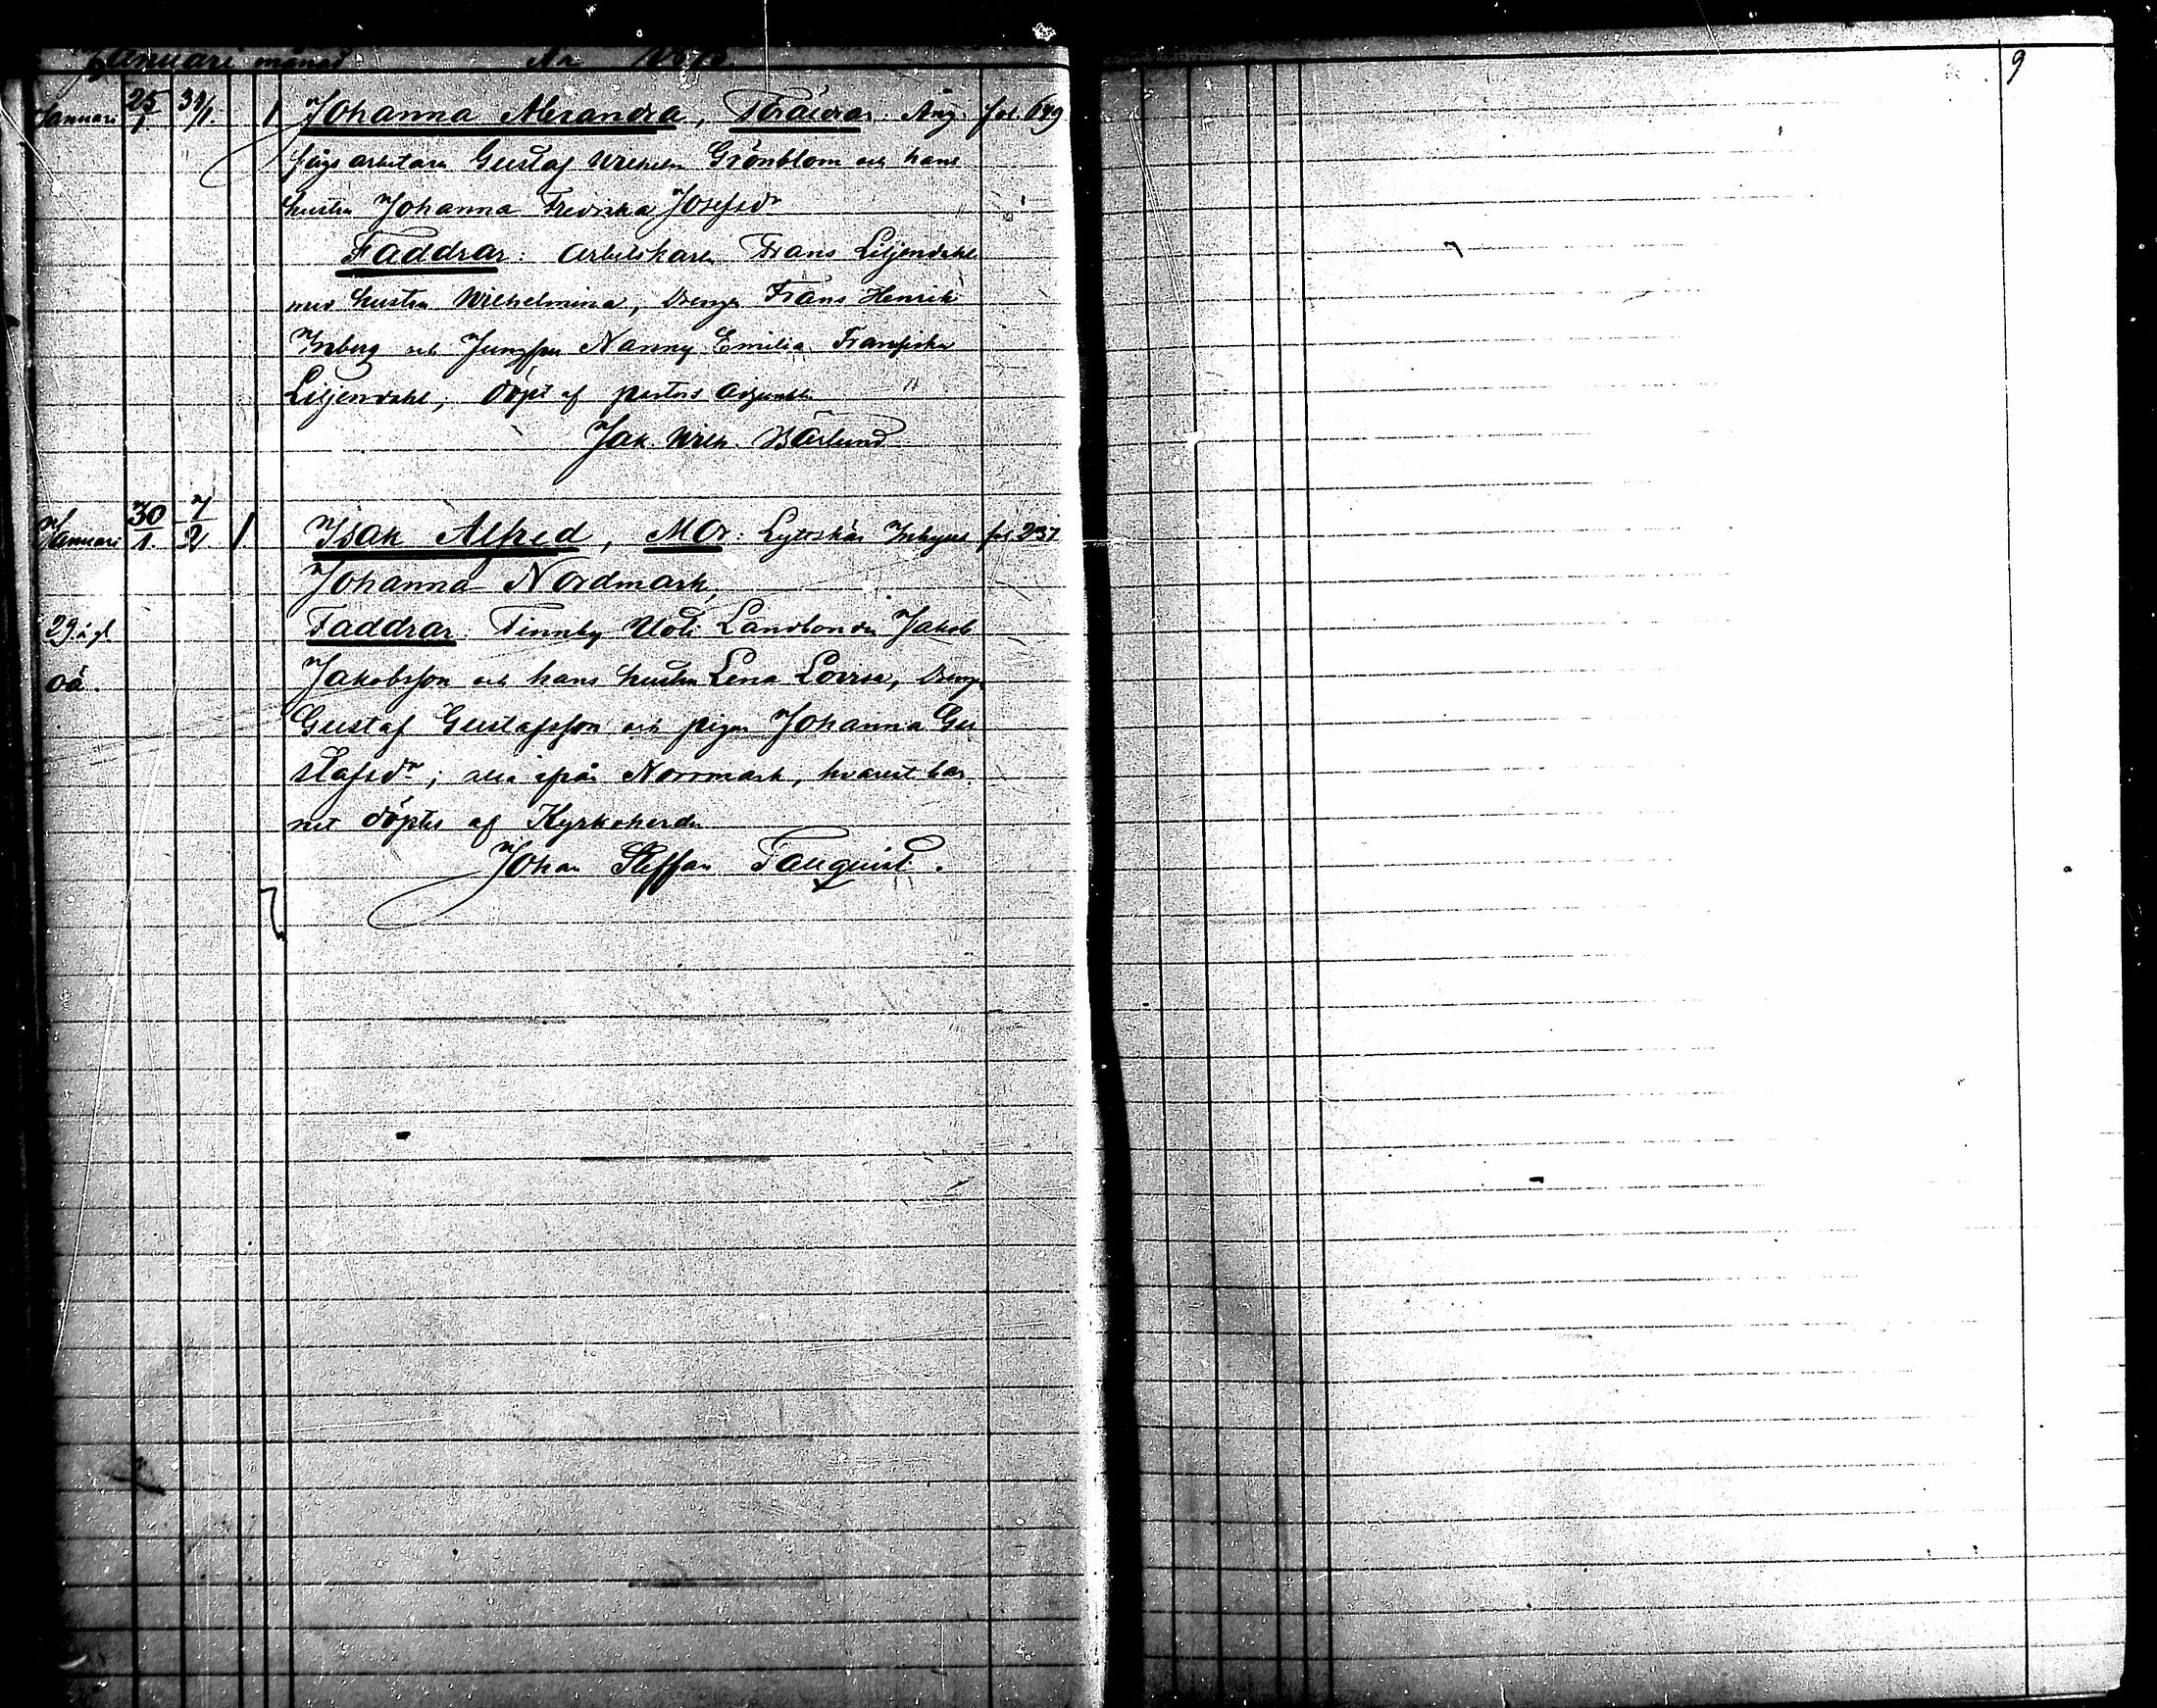 Januari månad År 1878.
9
Januari 25/1. 31/1. 1 Johanna Alexandra, Föräldrar: Ång- fol. 699
sågs arbetaren Gustaf Wilhelm Grönblom och hans
hustru Johanna Fredrika Josefsdr
Faddrar: Arbetskarlen Frans Liljendahl
med hustru Wilhelmina, Drengen Frans Henrik
Inberg och Jungfru Nanny Emilia Fransiska
Liljendahl, döpt af pastors adjunkten
Jak. Wilh. Bärlund
Januari 30/1. 7/2. 1. Isak Alfred, Mor: Lyttskär Inhyses fol. 237
Johanna Nordmark,
29 å gl. Faddrar: Finnby Uoti Landbonden Jakob
oä. Jakobsson och hans hustru Lena Lovisa, Drengen
Gustaf Gustafsson och pigan Johanna Gu
stafsdr; alla ifrån Norrmark, hvarest bar
net döptes af Kyrkoherden
Johan Staffan Tauquist.